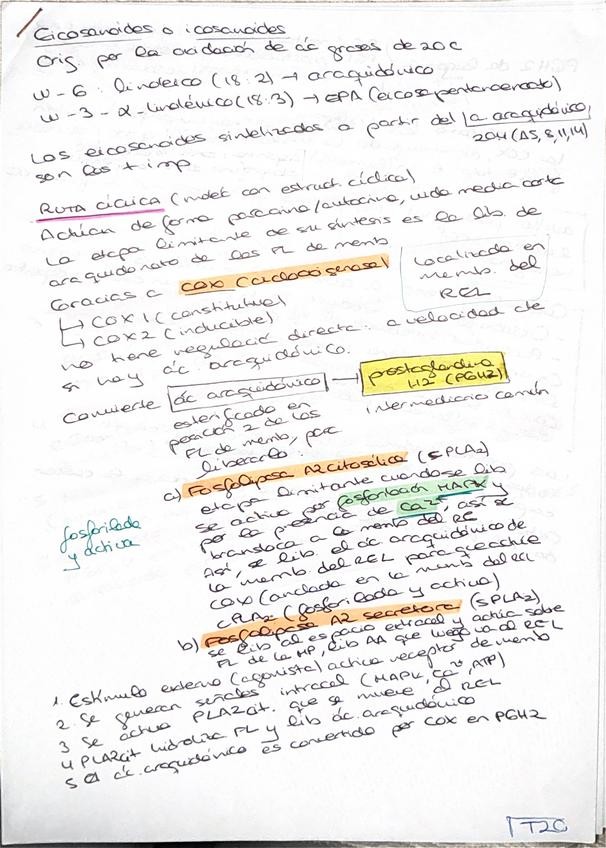 Eicosanoides o icosanoides
Orig por la oxidación de ác grasos de 20C
w-6: linoleico (18:2) → araquidónico
w-3-α-linolénico (18:3) → EPA (eicosapentaenoato)
Los eicosanoides sintetizados a partir del a. araquidónico,
son los + imp
20H (Δ5, 8, 11, 14)
RUTA CÍCLICA (moléc con estruct. cíclica)
Actúan de forma paracrina/autocrina, vida media corta
La etapa limitante de su síntesis es la lib. de
araquidonato de los FL de memb
Gracias a COX (ciclooxigenasa)
↳ COX 1 (constitutiva)
↳ COX 2 (inducible)
Localizada en
memb. del
REL
no tiene regulación directa: a velocidad de
si hay ác. araquidónico.
Convierte ác araquidónico → prostaglandina
H2 (PGH2)
esterificado en
posición 2 de los
FL de memb, para
liberarlo:
intermediario común
a) Fosfolipasa A2 citosólica (sPLA2)
etapa limitante cuando se lib
se activa por fosforilación MAPK y
por la presencia de Ca²⁺, así se
transloca a la memb del RE
Así, se lib el ác araquidónico de
la memb. del REL para que actúe
COX (anclada en la memb del REL
cPLA2 (fosforilada y activa)
fosforilada
y activa
b) Fosfolipasa A2 secretora (sPLA2)
se lib al espacio extracel y actúa sobre
FL de la MP, lib AA que luego va al REL
1. Estímulo externo (agonista) activa receptor de memb
2. Se generan señales intracel (MAPK, Ca²⁺, ATP)
3 Se activa PLA2cit. que se mueve al REL
4 PLA2cit hidroliza FL y lib ác. araquidónico
5 El ác. araquidónico es convertido por COX en PGH2
T20